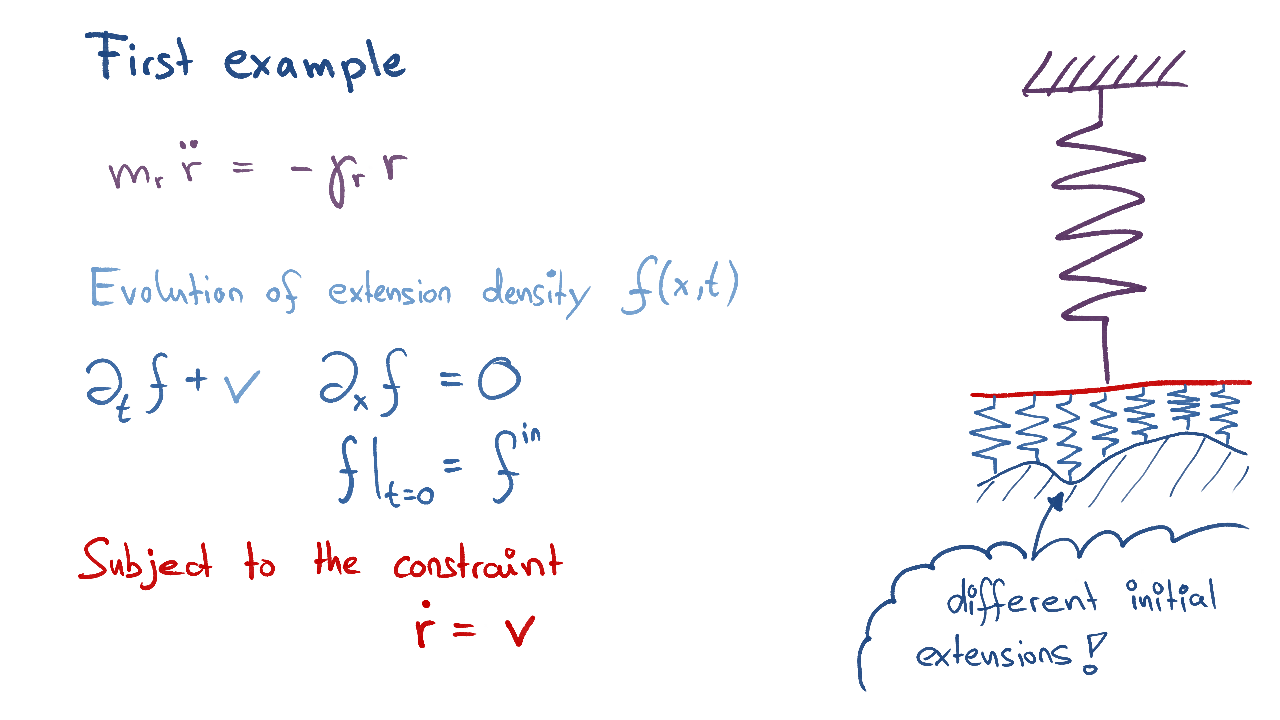 First example
mᵣ r̈ = - γᵣ r
Evolution of extension density f(x,t)
∂ₜ f + v ∂ₓ f = 0
f|ₜ₌₀ = fⁱⁿ
Subject to the constraint
ṙ = v
different initial
extensions!